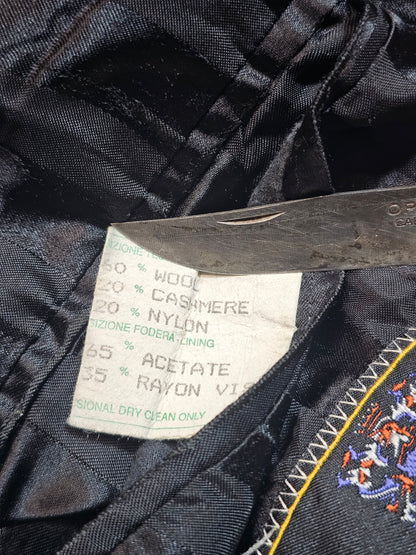 60 % WOOL
20 % CASHMERE
20 % NYLON
SIZIONE FODERA-LINING
65 % ACETATE
35 % RAYON VIS
SIONAL DRY CLEAN ONLY